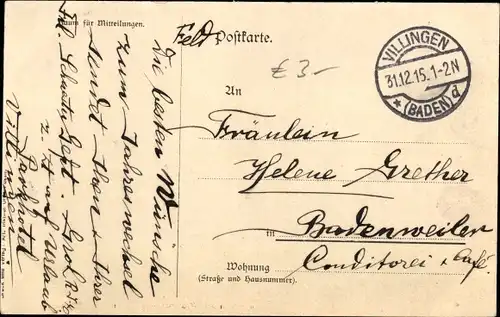 Raum für Mitteilungen.
Die besten Wünsche
zum Jahreswechsel
sendet Ihnen u. Ihrer
z. Zt. auf Urlaub
Villingen
Feld Postkarte.
£ 3-
VILLINGEN
31.12.15.1-2N
* (BADEN) d
An
Fräulein
Helene Grether
in Badenweiler
Wohnung Conditorei u. Café.
(Straße und Hausnummer).